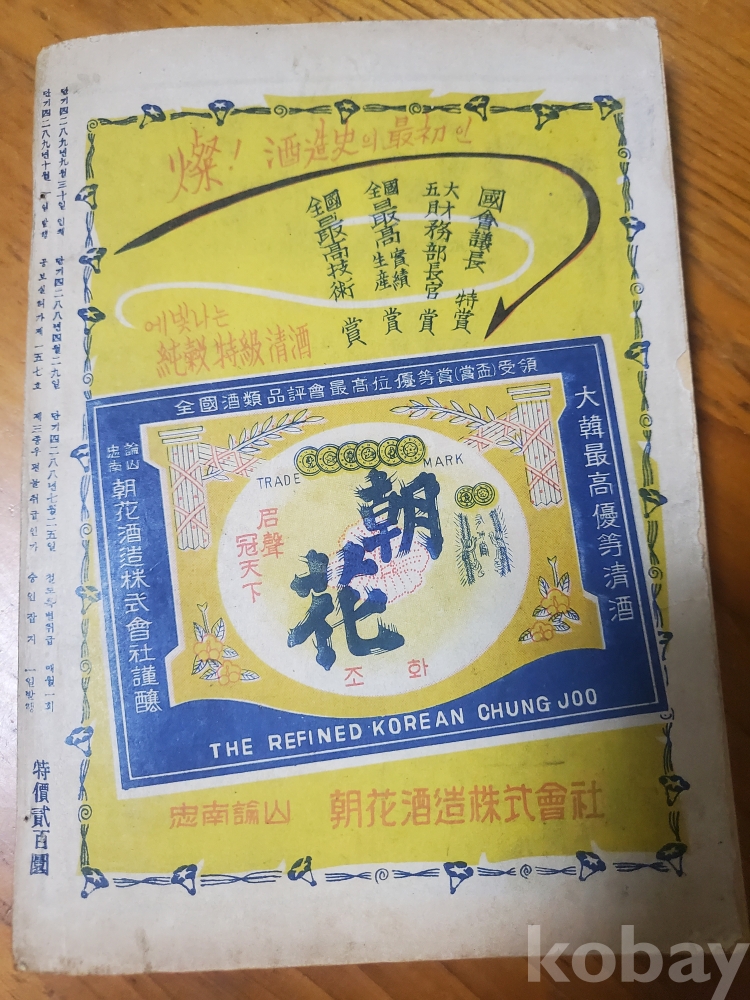 燦! 酒造史의 最初인
國會議長 特賞
五大財務部長官 賞
全國最高實績生産 賞
全國最高技術 賞
에빛나는
純穀特級清酒
全國酒類品評會最高位優等賞(賞盃)受領
大韓最高優等清酒
忠南論山 朝花酒造株式會社謹釀
TRADE MARK
朝花
名聲冠天下
조 화
THE REFINED KOREAN CHUNG JOO
忠南論山 朝花酒造株式會社
단기四二八九년九월三十일 인쇄 단기四二八八년四월二九일 단기四二八八년七월二五일 매월一회
단기四二八九년十월一일 발행 공보실허가제一五七호 제三종우편물취급인가 승인잡지 一일발행
特價貳百圜
kobay